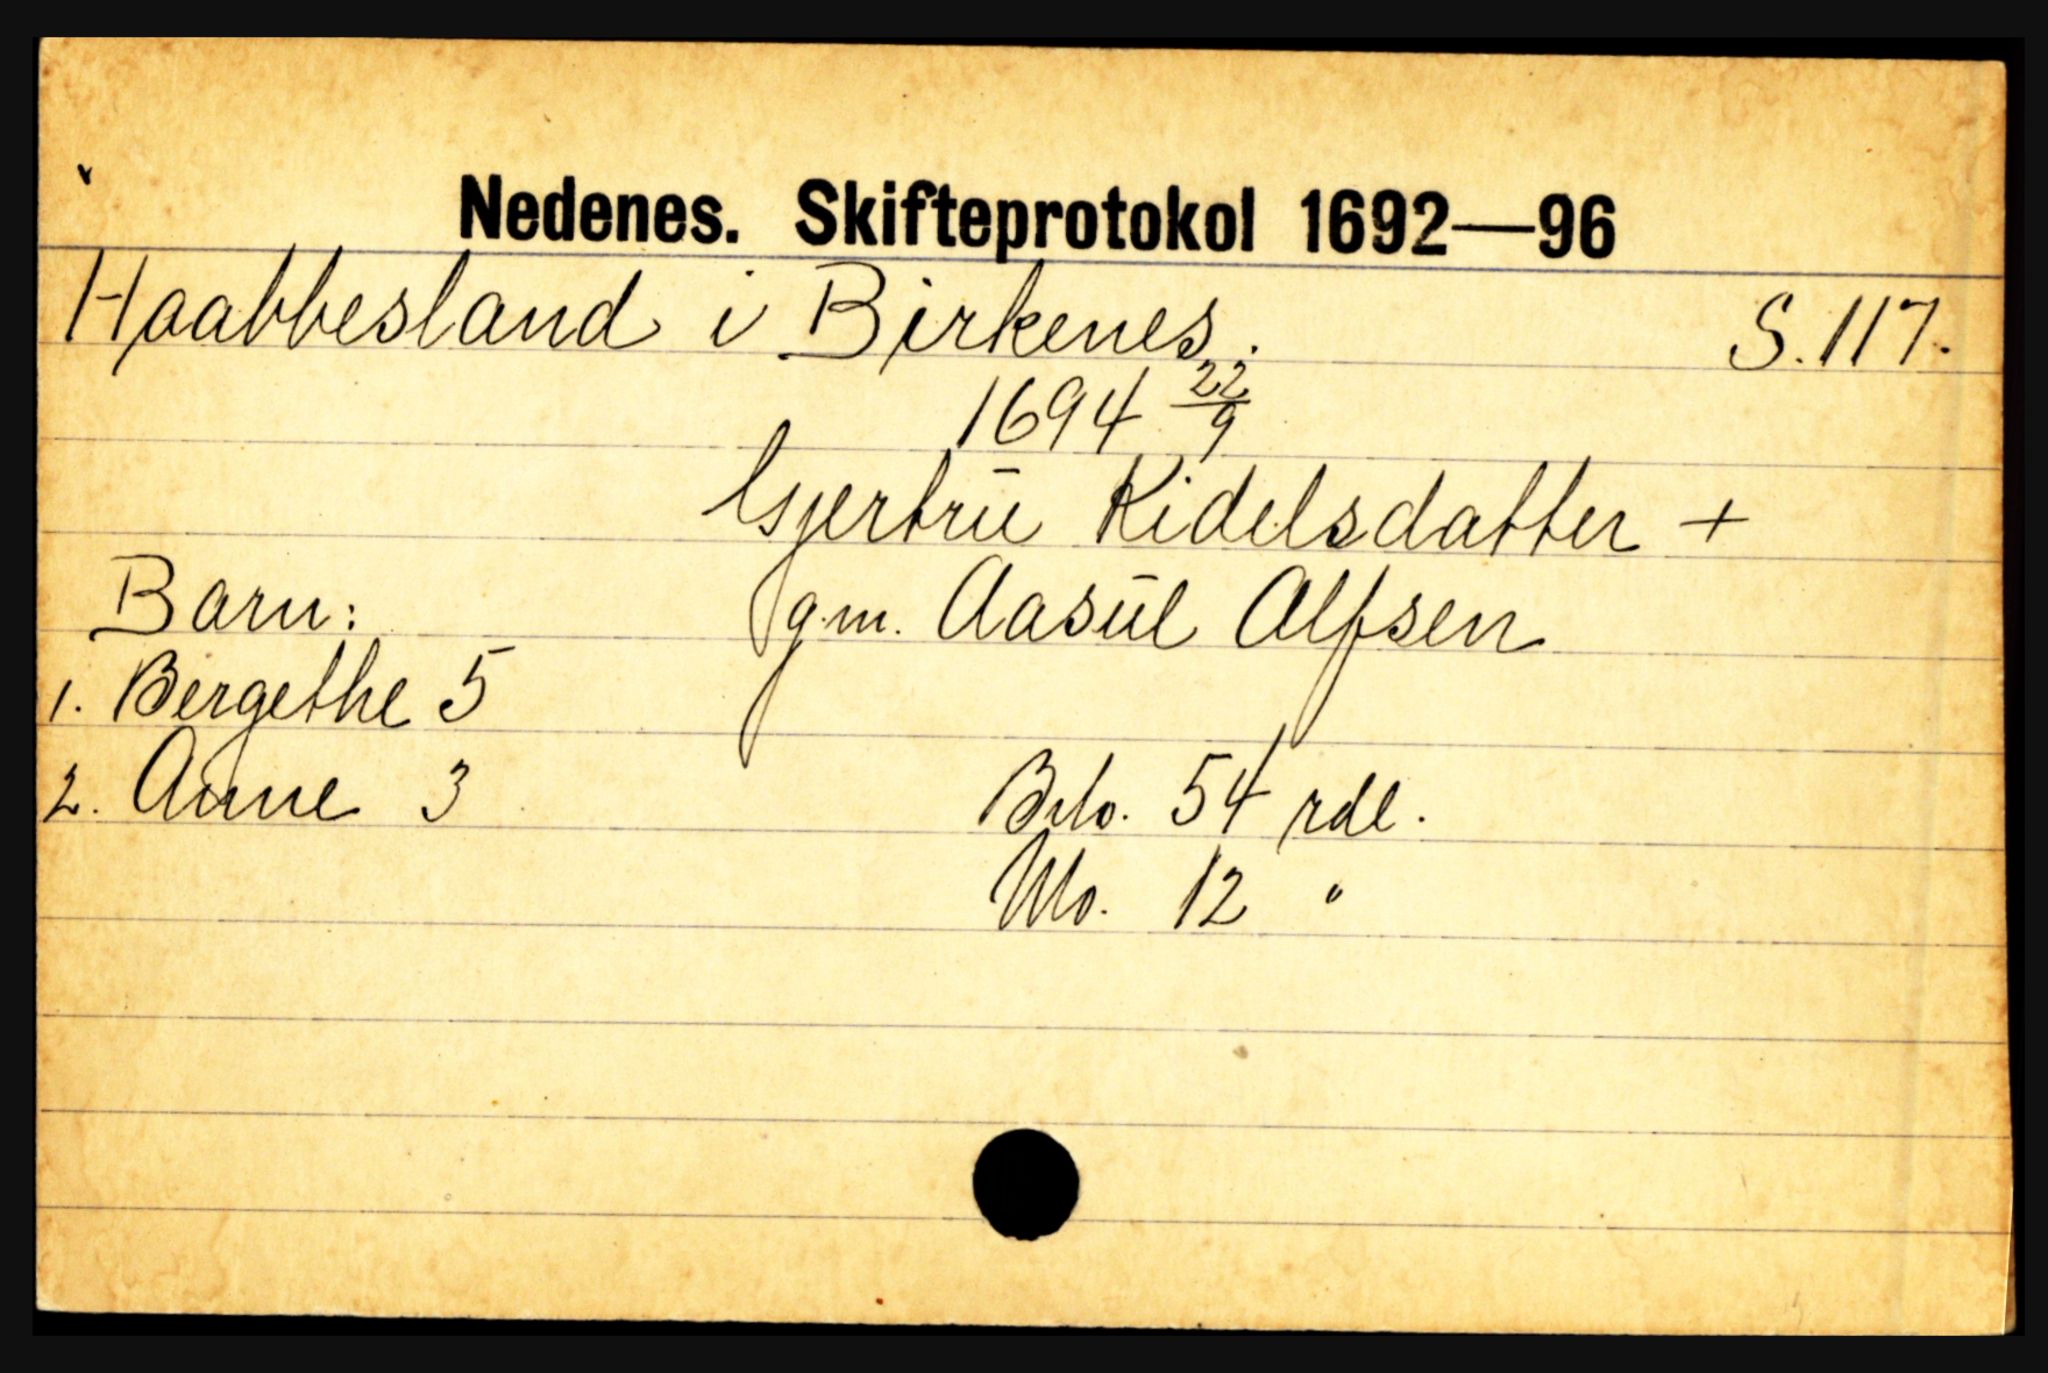 Nedenes. Skifteprotokol 1692—96
Haabbesland i Birkenes. S. 117.
1694 22/9
Gjertrū Kidelsdatter +
Barn: g.m. Aasūl Alfsen
1. Bergethe 5
2. Anne 3 Brto. 54 rdl.
Mo. 12 "